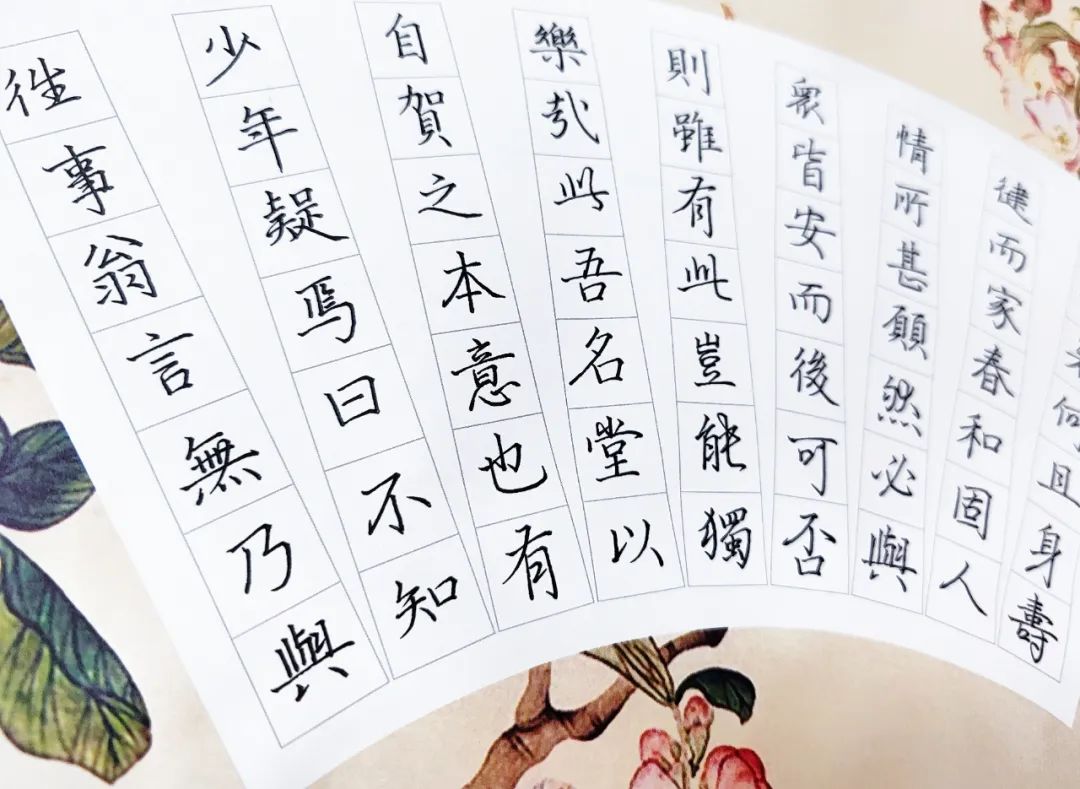 何且身壽
健而家春和固人
情所甚願然必與
衆皆安而後可否
則雖有此豈能獨
樂哉此吾名堂以
自賀之本意也有
少年疑焉曰不知
往事翁言無乃與